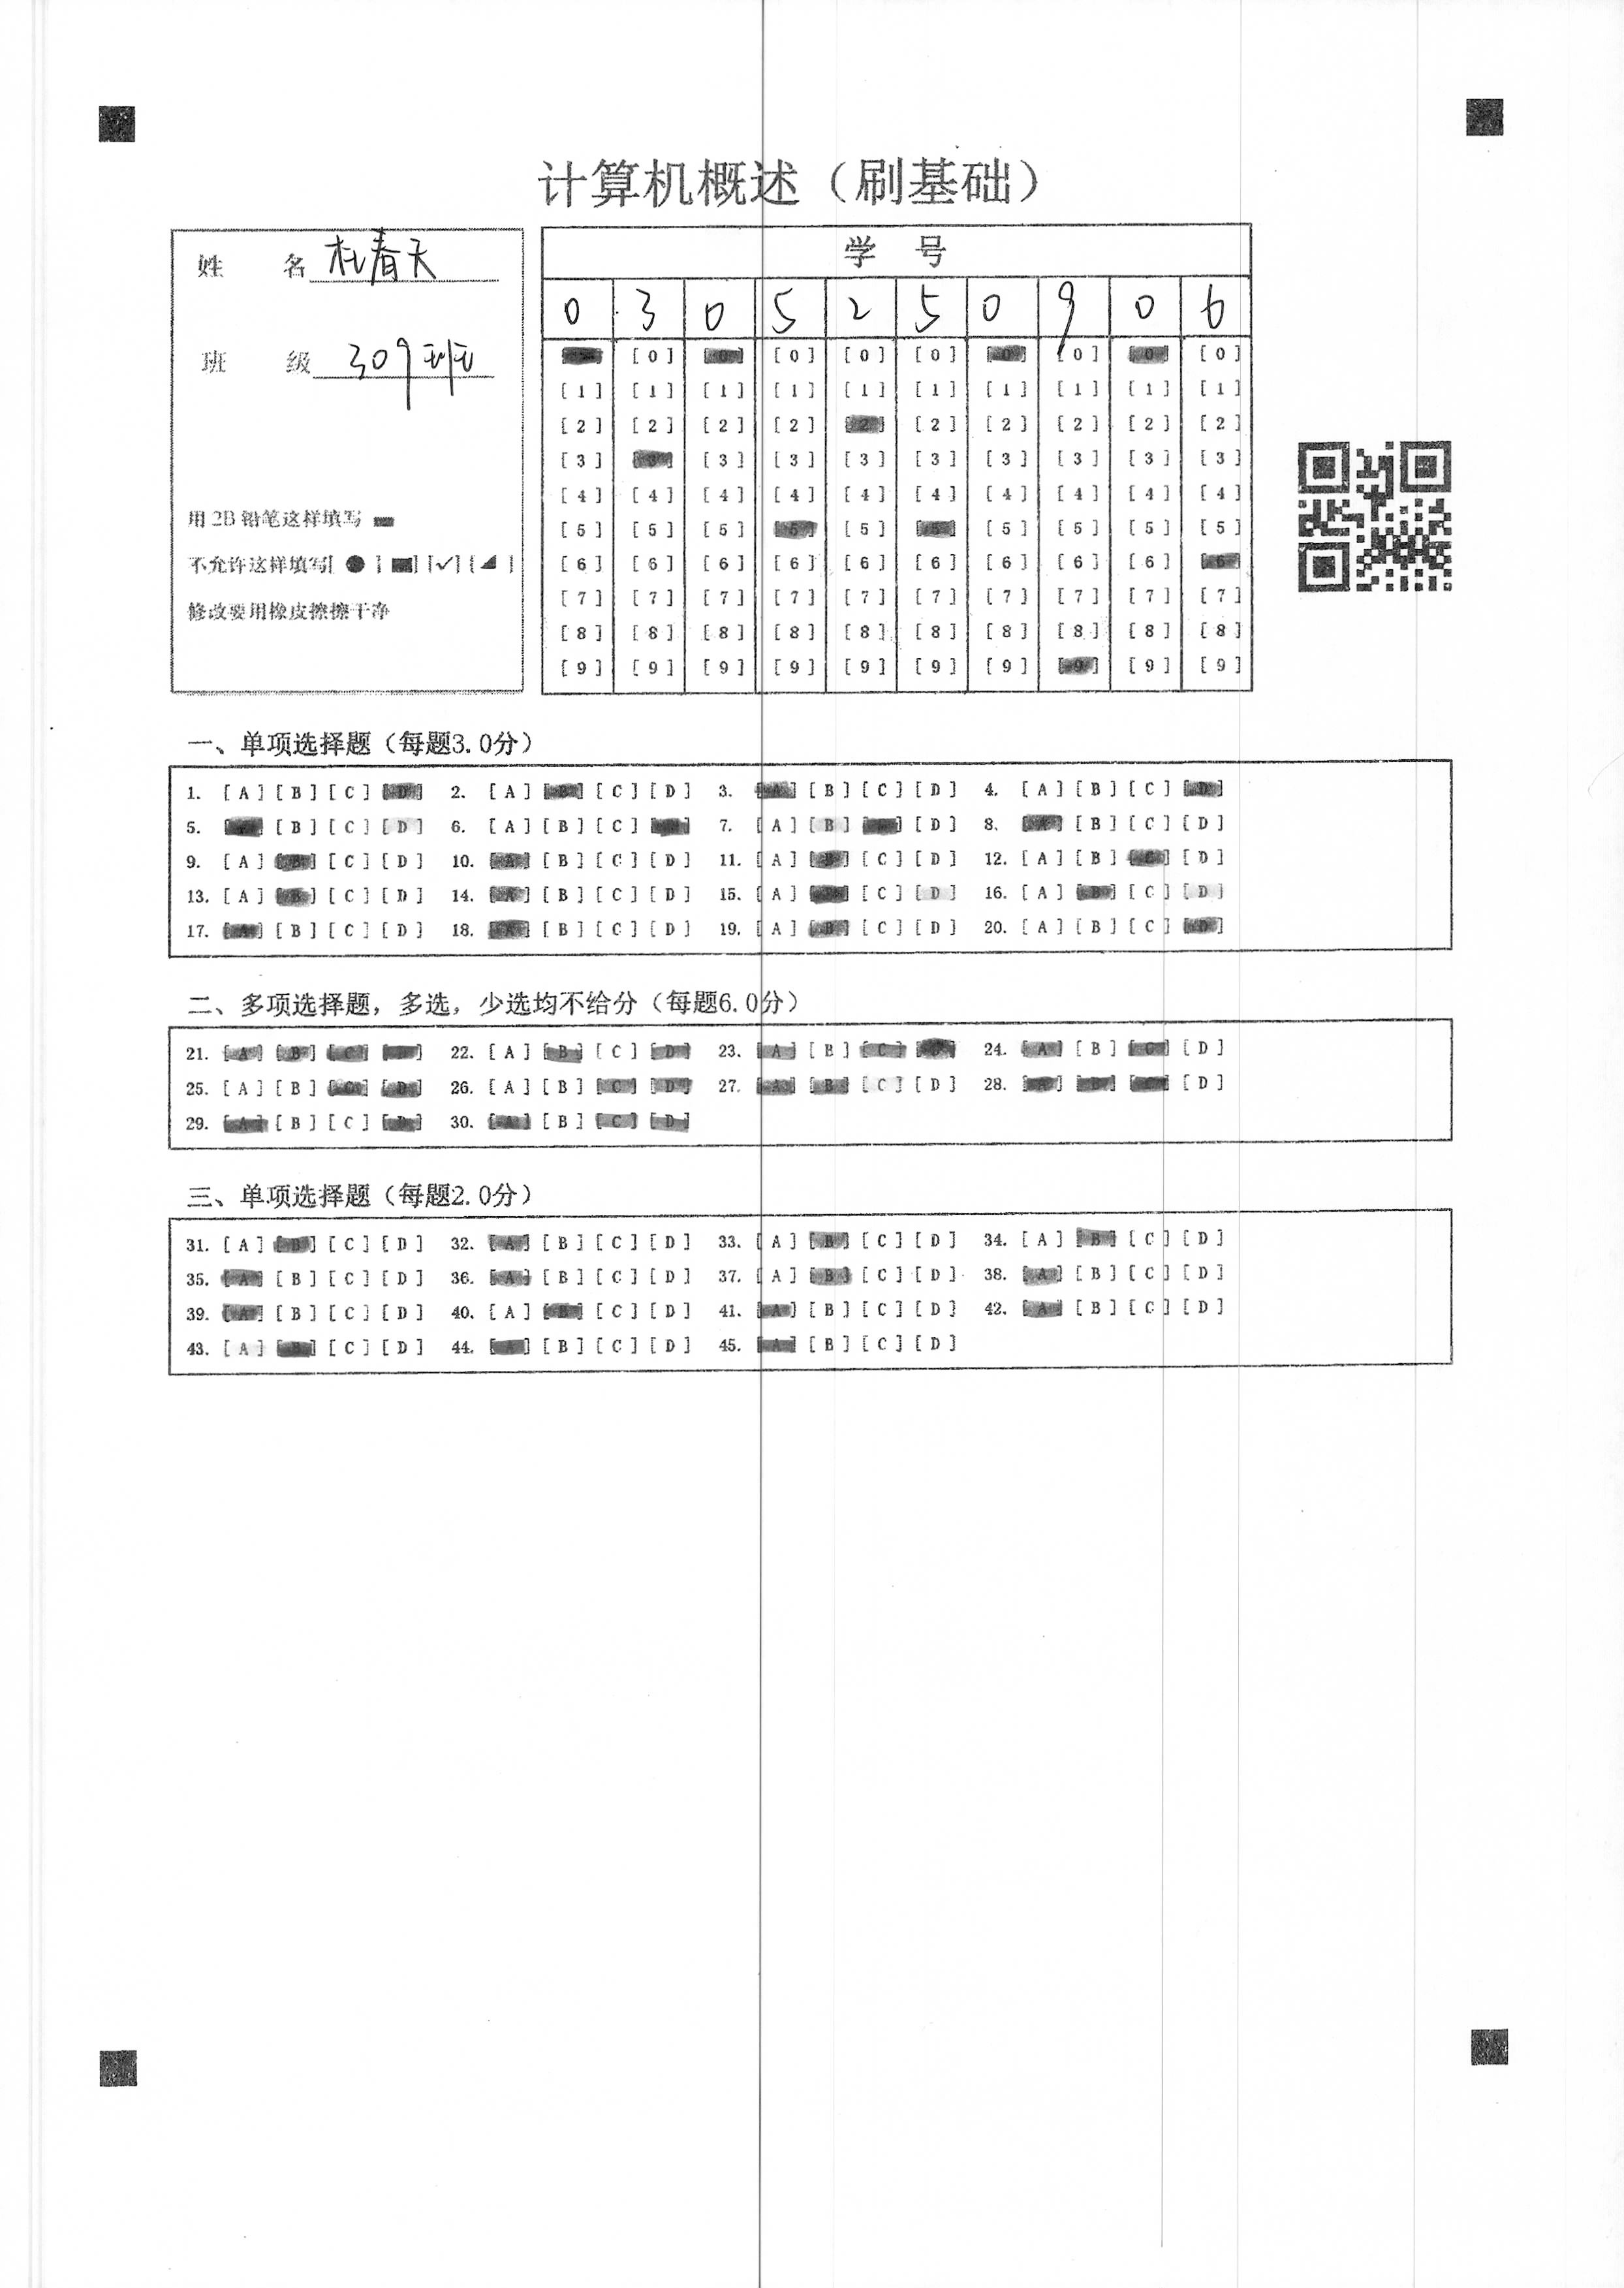 计算机概述（刷基础）
姓 名 杜春天
班 级 309班
用2B铅笔这样填写
不允许这样填写[ ● ] [■] [✓] [◢ ]
修改要用橡皮擦擦干净
学 号
0 3 0 5 2 5 0 9 0 6
[0] [0] [0] [0] [0] [0] [0] [0] [0]
[1] [1] [1] [1] [1] [1] [1] [1] [1] [1]
[2] [2] [2] [2] [2] [2] [2] [2] [2] [2]
[3] [3] [3] [3] [3] [3] [3] [3] [3] [3]
[4] [4] [4] [4] [4] [4] [4] [4] [4] [4]
[5] [5] [5] [5] [5] [5] [5] [5] [5] [5]
[6] [6] [6] [6] [6] [6] [6] [6] [6] [6]
[7] [7] [7] [7] [7] [7] [7] [7] [7] [7]
[8] [8] [8] [8] [8] [8] [8] [8] [8] [8]
[9] [9] [9] [9] [9] [9] [9] [9] [9] [9]
一、单项选择题（每题3.0分）
1. [A] [B] [C] [D] 2. [A] [B] [C] [D] 3. [A] [B] [C] [D] 4. [A] [B] [C] [D]
5. [B] [C] [D] 6. [A] [B] [C] 7. [A] [B] [D] 8. [A] [B] [C] [D]
9. [A] [B] [C] [D] 10. [A] [B] [C] [D] 11. [A] [B] [C] [D] 12. [A] [B] [C] [D]
13. [A] [B] [C] [D] 14. [A] [B] [C] [D] 15. [A] [B] [C] [D] 16. [A] [B] [C] [D]
17. [A] [B] [C] [D] 18. [A] [B] [C] [D] 19. [A] [B] [C] [D] 20. [A] [B] [C] [D]
二、多项选择题，多选，少选均不给分（每题6.0分）
21. [A] [B] [C] [D] 22. [A] [B] [C] [D] 23. [A] [B] [C] [D] 24. [A] [B] [C] [D]
25. [A] [B] [C] [D] 26. [A] [B] [C] [D] 27. [A] [B] [C] [D] 28. [A] [B] [C] [D]
29. [A] [B] [C] [D] 30. [A] [B] [C] [D]
三、单项选择题（每题2.0分）
31. [A] [B] [C] [D] 32. [A] [B] [C] [D] 33. [A] [B] [C] [D] 34. [A] [B] [C] [D]
35. [A] [B] [C] [D] 36. [A] [B] [C] [D] 37. [A] [B] [C] [D] 38. [A] [B] [C] [D]
39. [A] [B] [C] [D] 40. [A] [B] [C] [D] 41. [A] [B] [C] [D] 42. [A] [B] [C] [D]
43. [A] [B] [C] [D] 44. [A] [B] [C] [D] 45. [A] [B] [C] [D]